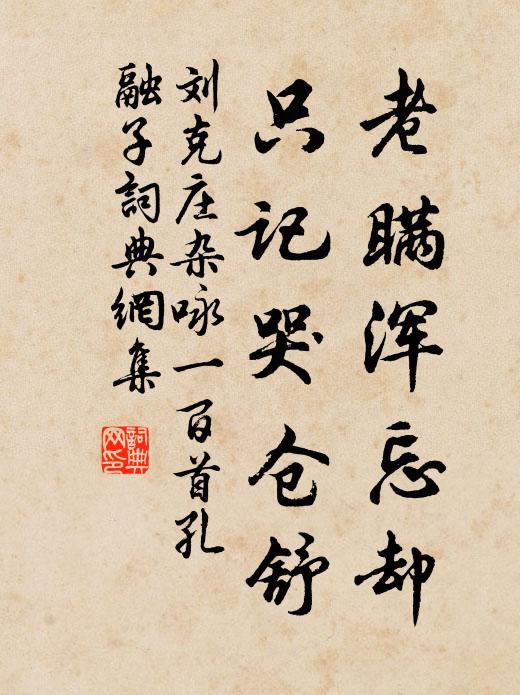 老瞒浑忘却
只记哭仓舒
刘克庄杂咏一百首孔
融子詞典網集
詞典
网印